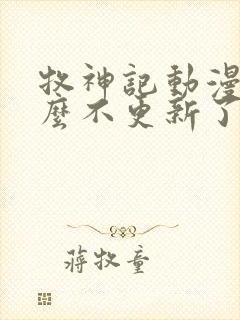 牧神記動漫
麼不更新了
蔣牧童